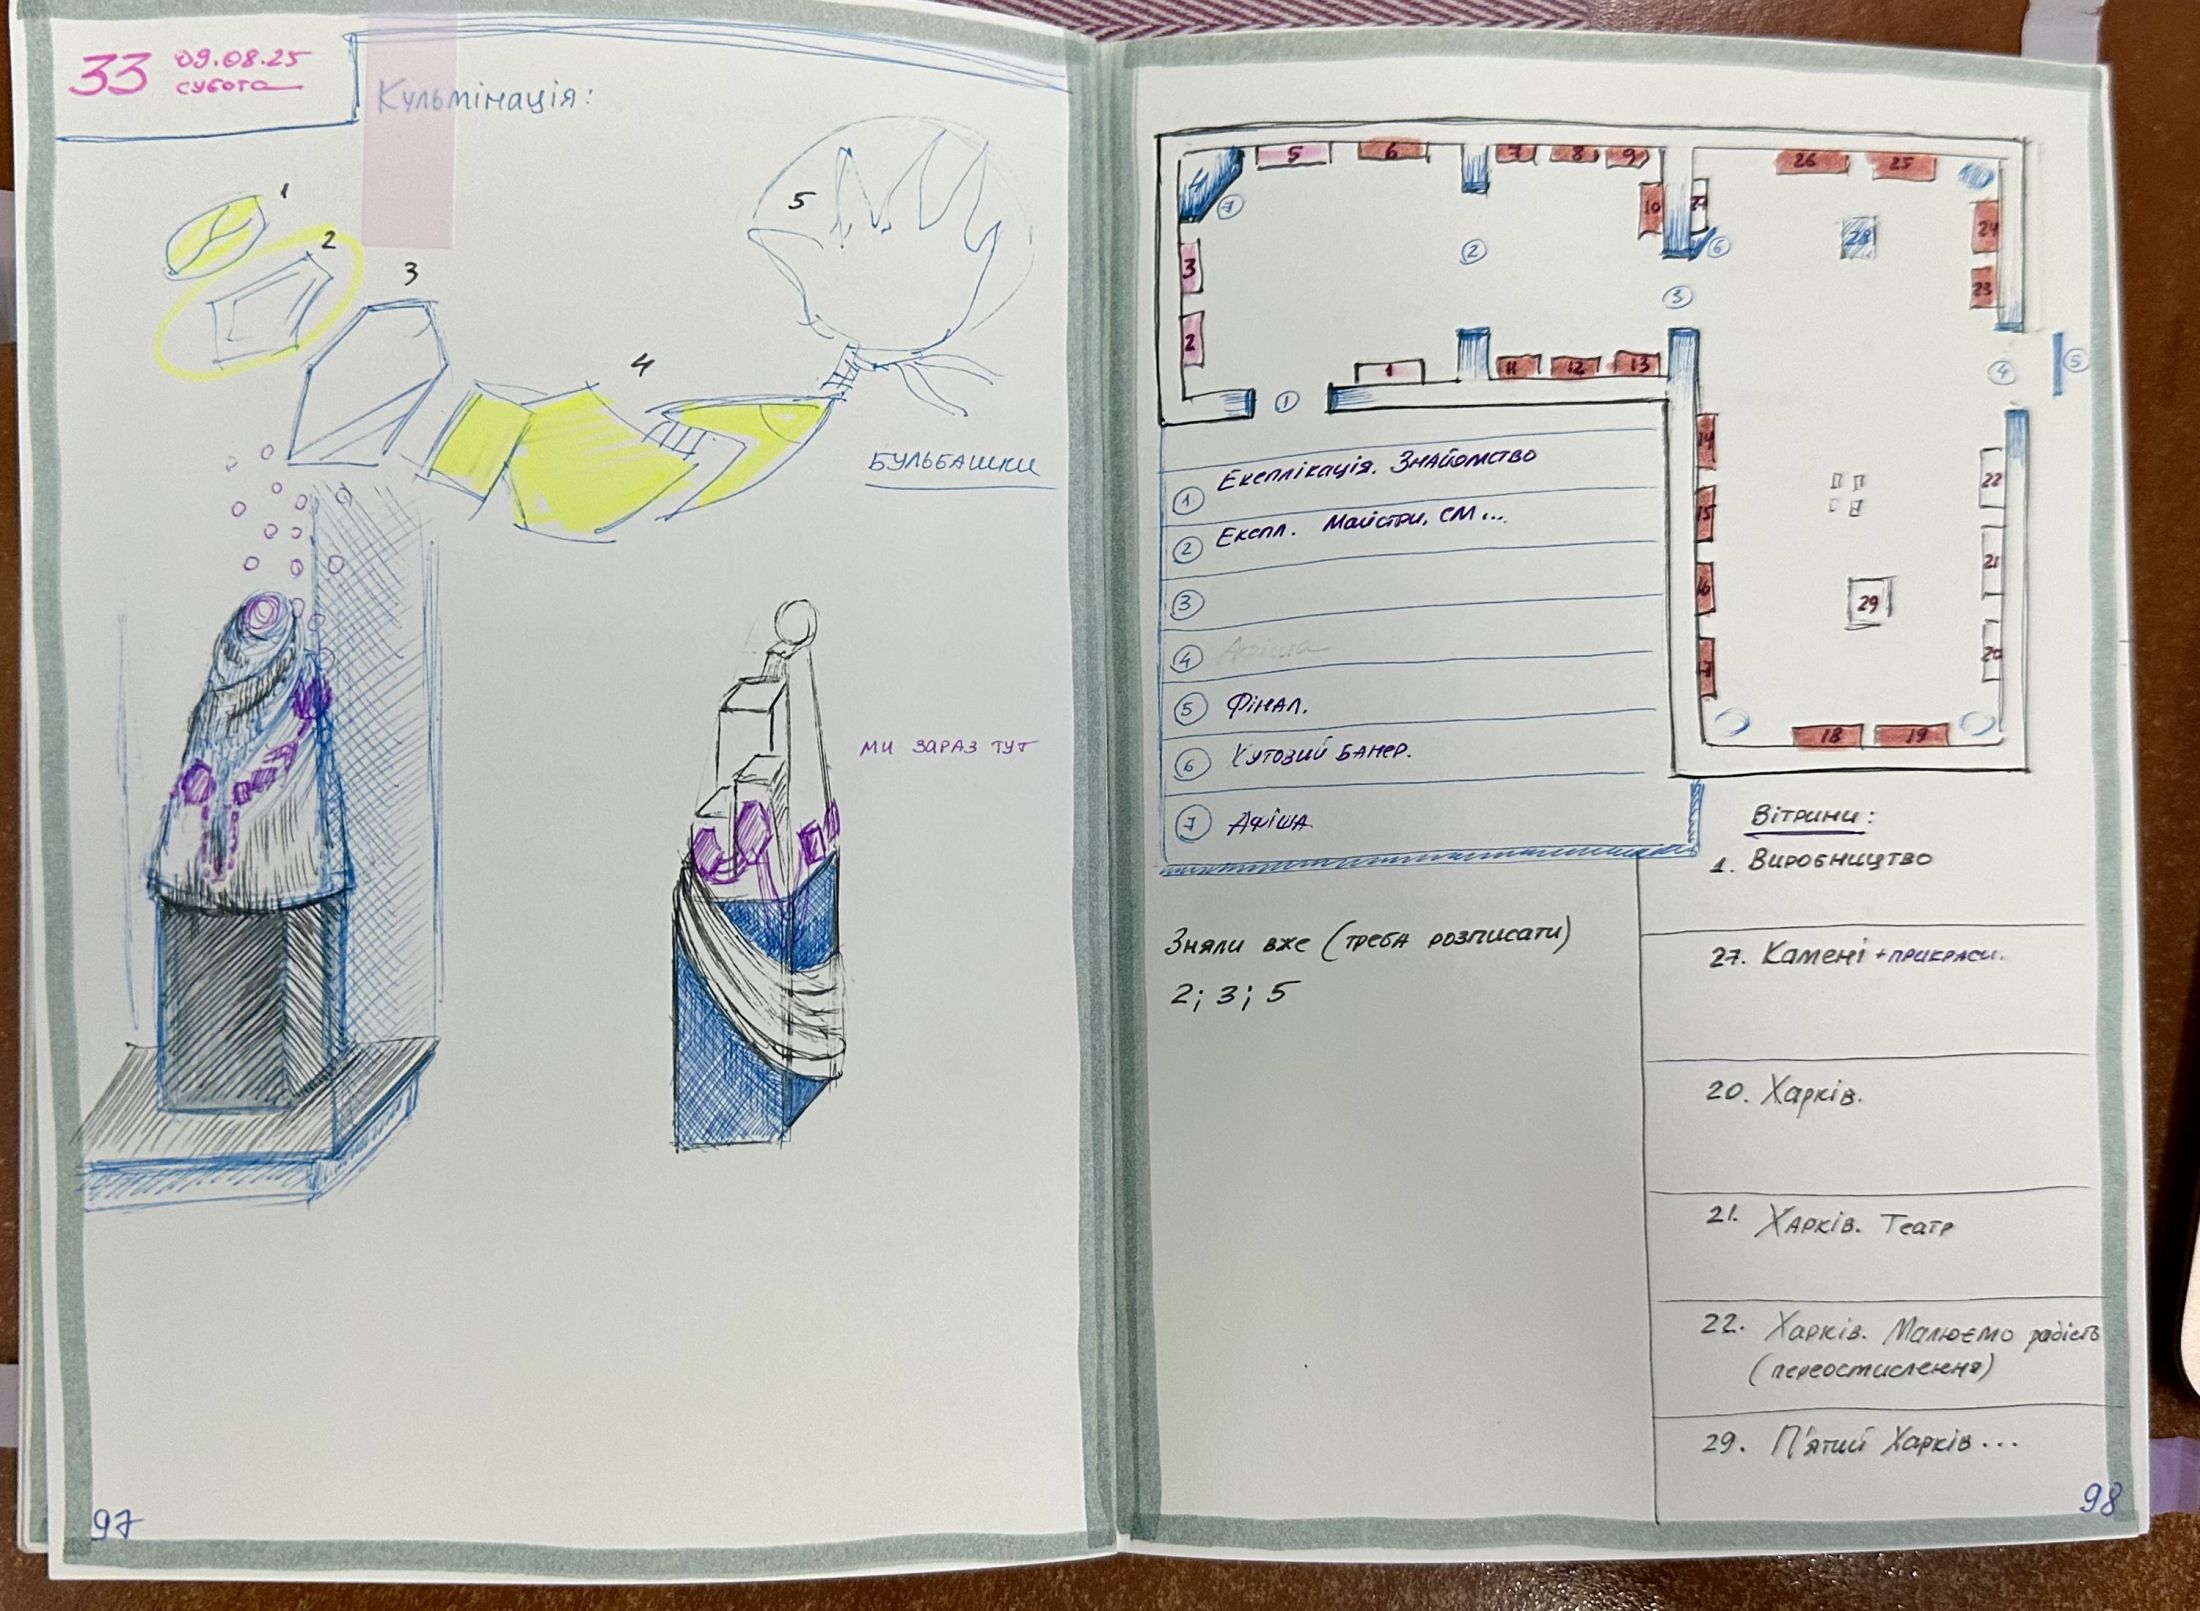 33 09.08.25
субота
Кульмінація:
1
2
3
4
5
БУЛЬБАШКИ
МИ ЗАРАЗ ТУТ
97
5
6
7
8
9
10
26
25
24
23
7
2
6
3
28
3
2
1
11
12
13
4
5
1
14
15
16
22
21
20
29
18
19
1 Експлікація. Знайомство
2 Експл. Майстри, СМ...
3
4 Афіша
5 Фінал.
6 Кутовий банер.
7 Афіша
Зняли вже (треба розписати)
2; 3; 5
Вітрини:
1. Виробництво
27. Камені + прикраси.
20. Харків.
21. Харків. Театр
22. Харків. Малюємо радість
(переосмислення)
29. П'ятий Харків...
98